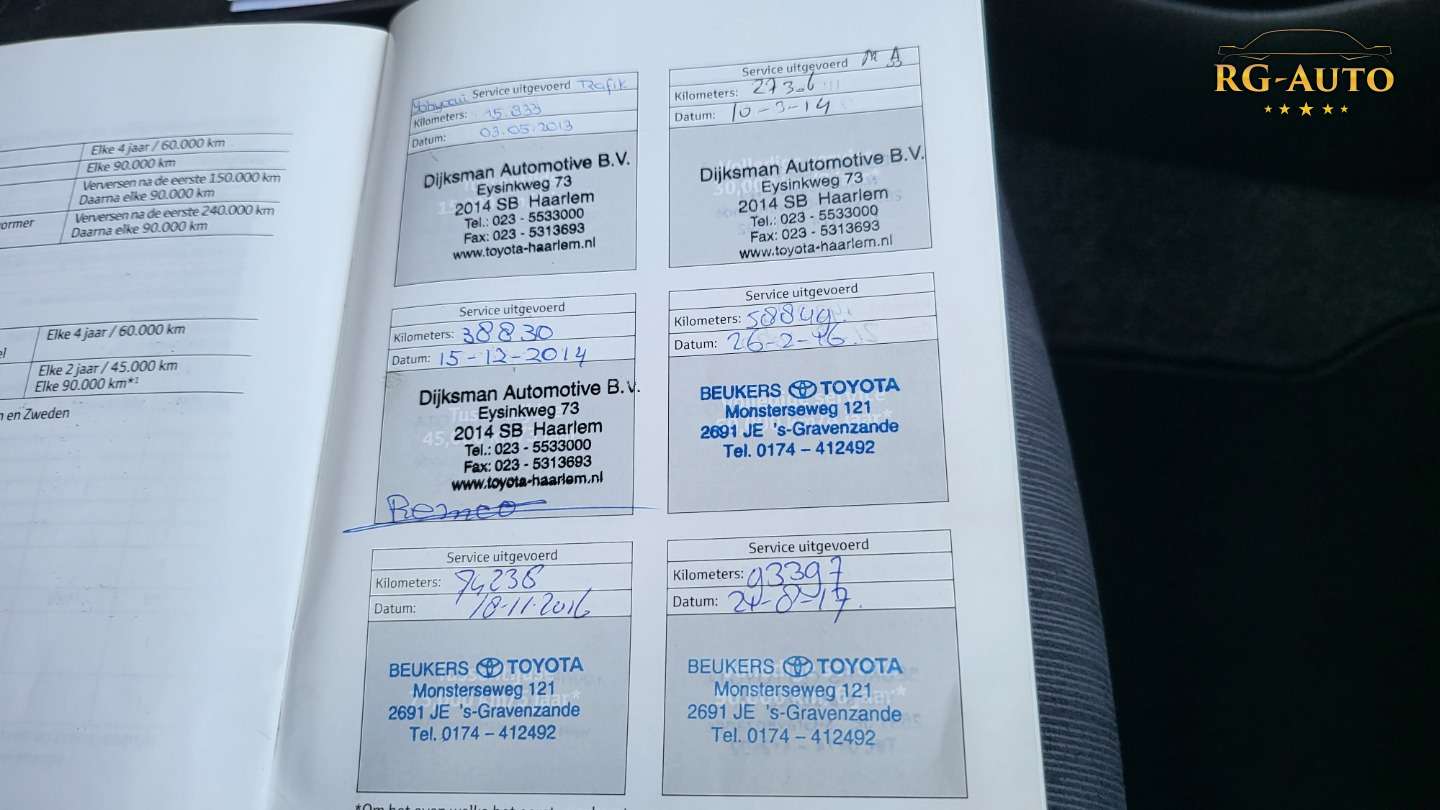 RG-AUTO
Elke 4 jaar / 60.000 km
Elke 90.000 km
Verversen na de eerste 150.000 km
Daarna elke 90.000 km
ormer
Verversen na de eerste 240.000 km
Daarna elke 90.000 km
Elke 4 jaar / 60.000 km
el
Elke 2 jaar / 45.000 km
Elke 90.000 km*¹
n en Zweden
Service uitgevoerd Rafik
Kilometers: 15.833
Datum: 03.05.2013
Dijksman Automotive B.V.
Eysinkweg 73
2014 SB Haarlem
Tel.: 023 - 5533000
Fax: 023 - 5313693
www.toyota-haarlem.nl
Service uitgevoerd
Kilometers:
Datum: 10-3-14
Dijksman Automotive B.V.
Eysinkweg 73
2014 SB Haarlem
Tel.: 023 - 5533000
Fax: 023 - 5313693
www.toyota-haarlem.nl
Service uitgevoerd
Kilometers: 38830
Datum: 15-12-2014
Dijksman Automotive B.V.
Eysinkweg 73
2014 SB Haarlem
Tel.: 023 - 5533000
Fax: 023 - 5313693
www.toyota-haarlem.nl
Remco
Service uitgevoerd
Kilometers: 58849
Datum: 26-2-16
BEUKERS TOYOTA
Monsterseweg 121
2691 JE 's-Gravenzande
Tel. 0174 – 412492
Service uitgevoerd
Kilometers: 74238
Datum: 18-11-2016
BEUKERS TOYOTA
Monsterseweg 121
2691 JE 's-Gravenzande
Tel. 0174 – 412492
Service uitgevoerd
Kilometers: 93397
Datum: 21-8-17
BEUKERS TOYOTA
Monsterseweg 121
2691 JE 's-Gravenzande
Tel. 0174 – 412492